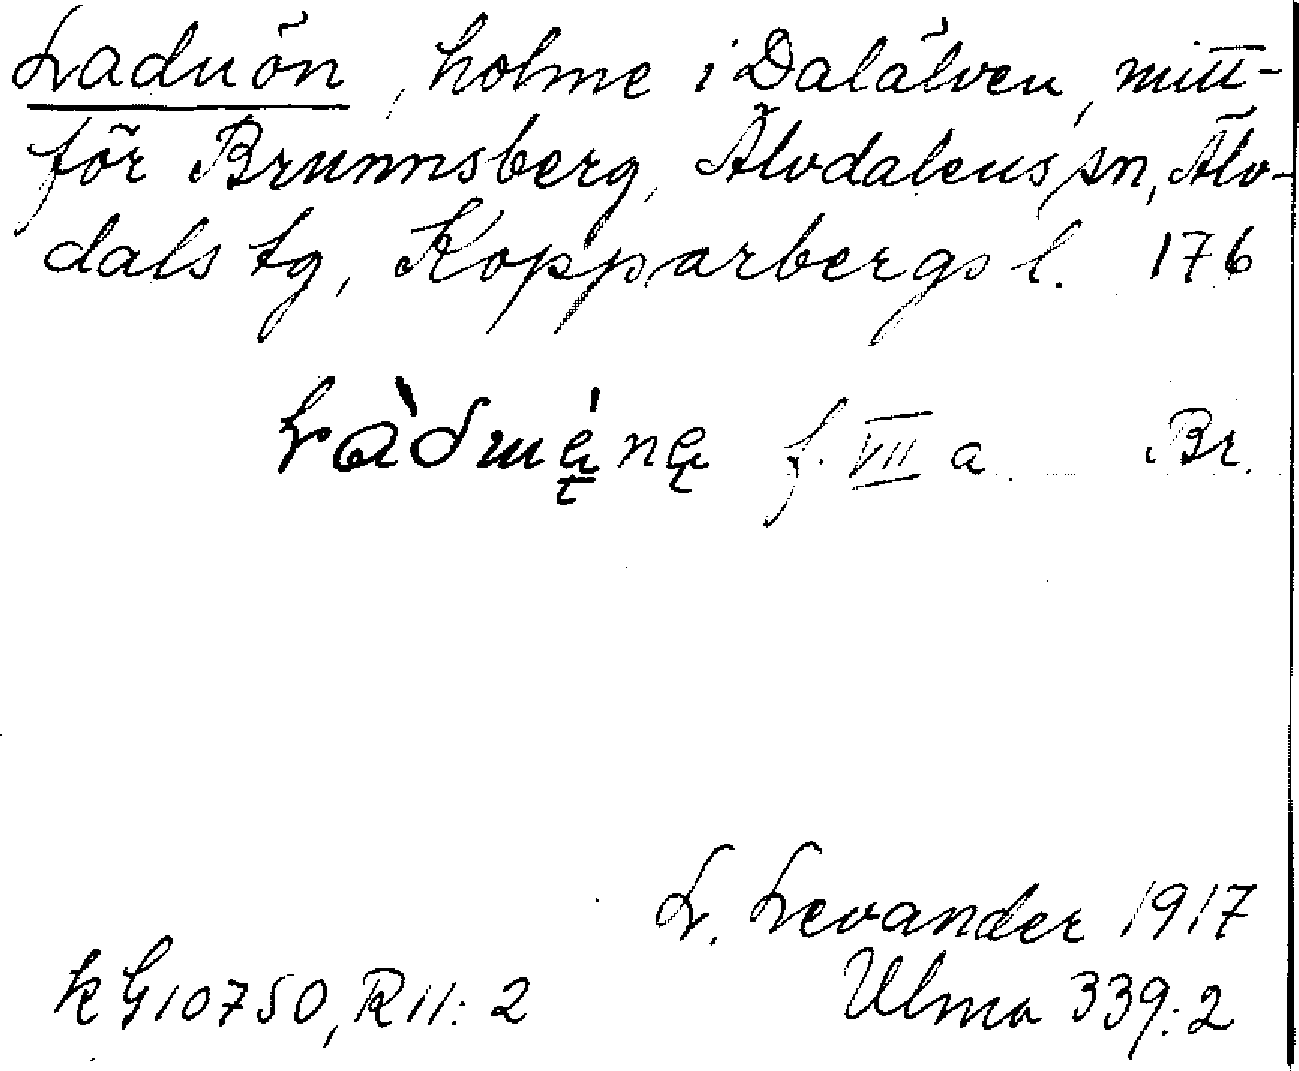 Laduön, holme i Dalälven, mitt-
för Brunnsberg, Älvdalens sn, Älv-
dals tg, Kopparbergs l. 176
f. VII a Br.
L. Levander 1917
Ulma 339:2
10750, R 11: 2